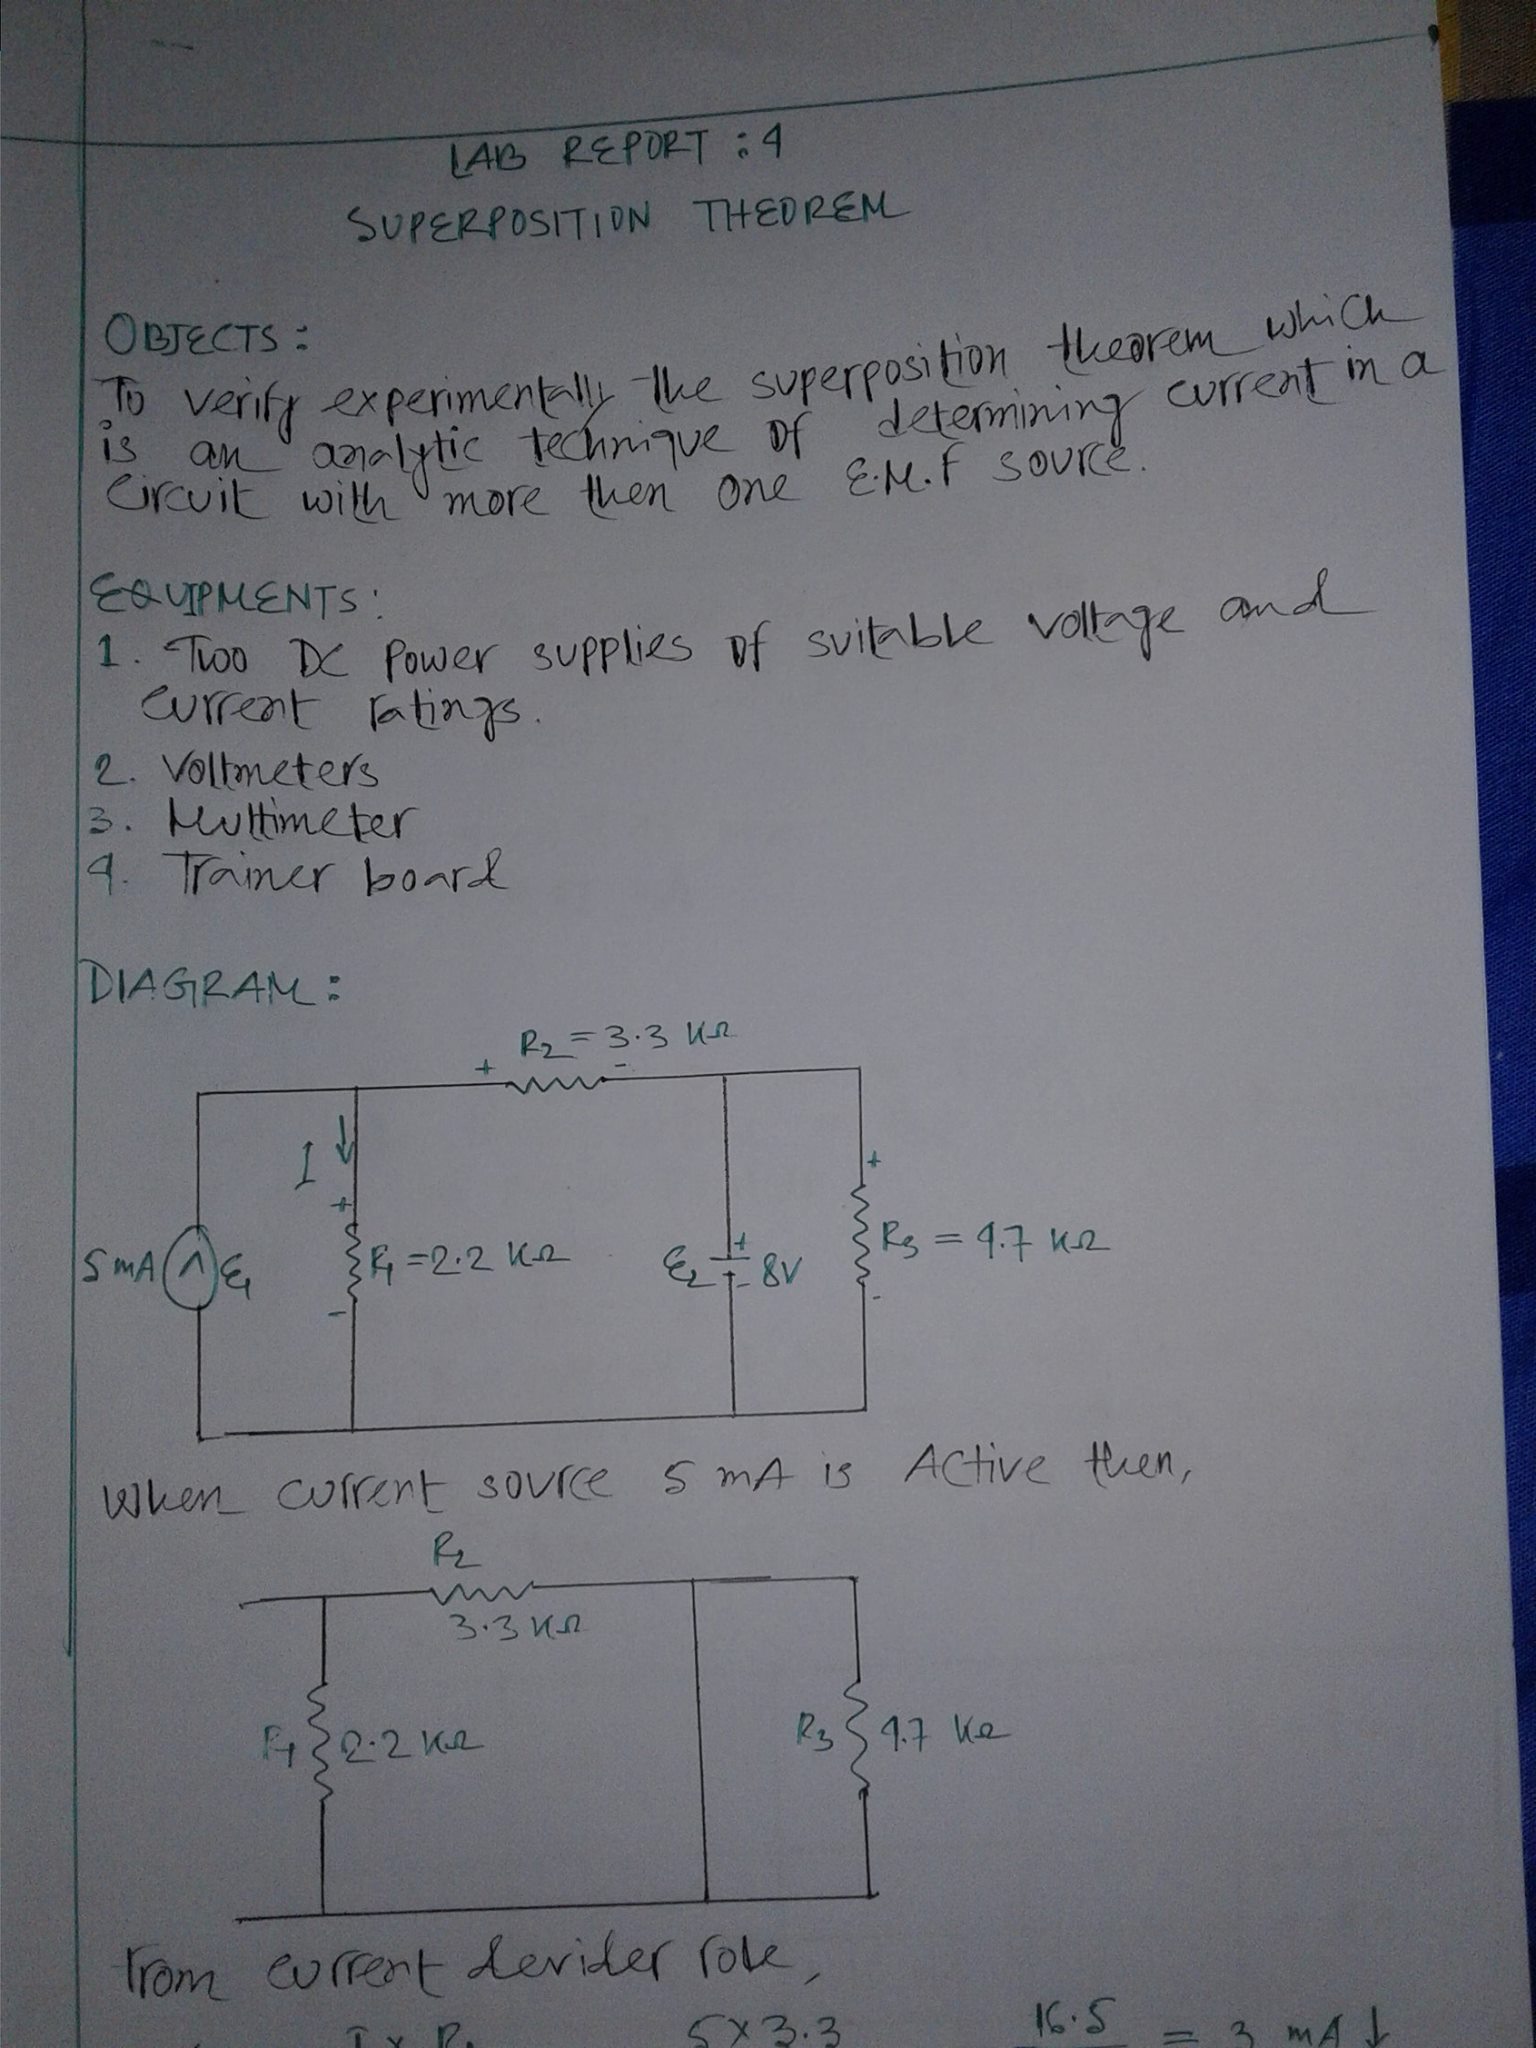 LAB REPORT : 4
SUPERPOSITION THEOREM
OBJECTS :
To verify experimentally the superposition theorem which
is an analytic technique of determining current in a
circuit with more then one E.M.F source.
EQUIPMENTS :
1. Two DC Power supplies of suitable voltage and
current ratings.
2. Voltmeters
3. Multimeter
4. Trainer board
DIAGRAM :
R2 = 3.3 KΩ
+ -
I
+ +
5 mA E1 R1 = 2.2 KΩ E2 + - 8V R3 = 4.7 KΩ
- -
When current source 5 mA is Active then,
R2
3.3 KΩ
R1 2.2 KΩ R3 4.7 KΩ
From current devider role,
5 × 3.3 16.5 = 3 mA ↓